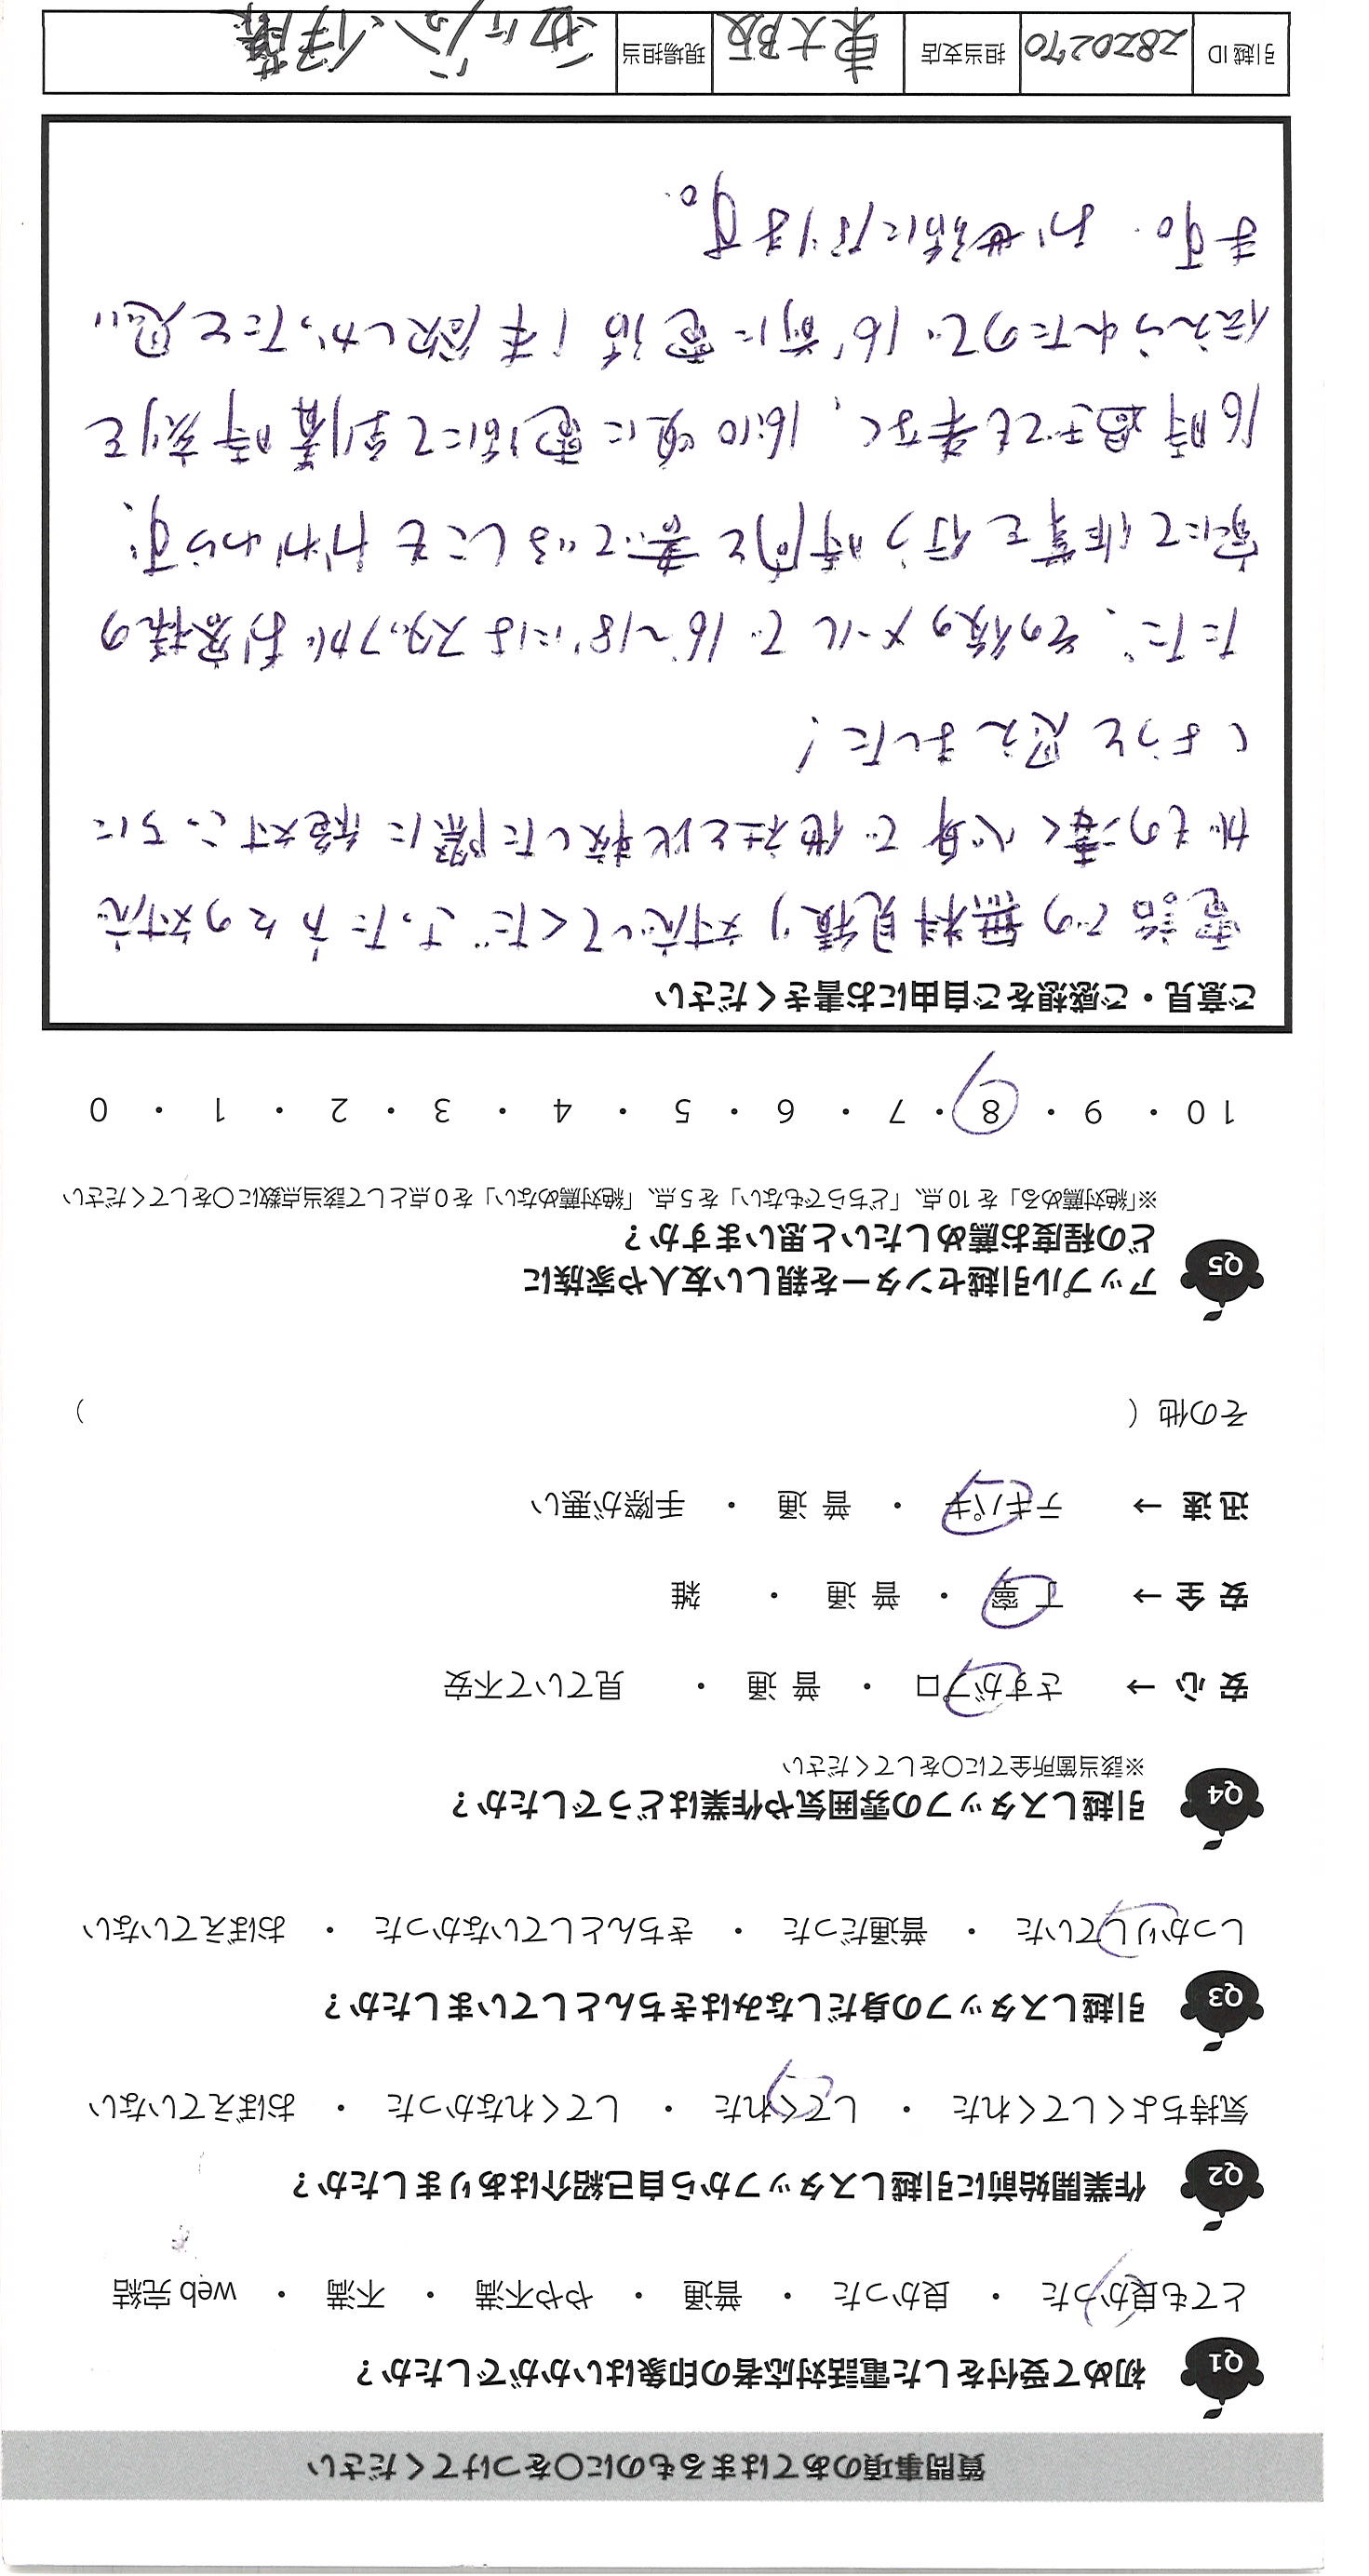 質問事項のあてはまるものに○をつけてください
Q1 初めて受付をした電話対応者の印象はいかがでしたか？
とても良かった ・ 良かった ・ 普通 ・ やや不満 ・ 不満 ・ web 完結
Q2 作業開始前に引越しスタッフから自己紹介はありましたか？
気持ちよくしてくれた ・ してくれた ・ してくれなかった ・ おぼえていない
Q3 引越しスタッフの身だしなみはきちんとしていましたか？
しっかりしていた ・ 普通だった ・ きちんとしていなかった ・ おぼえていない
Q4 引越しスタッフの雰囲気や作業はどうでしたか？
※該当箇所全てに○をしてください
安心 → さすがプロ ・ 普通 ・ 見ていて不安
安全 → 丁寧 ・ 普通 ・ 雑
迅速 → テキパキ ・ 普通 ・ 手際が悪い
その他（ ）
Q5 アップル引越センターを親しい友人や家族に
どの程度お薦めしたいと思いますか？
※「絶対薦める」を 10 点、「どちらでもない」を 5 点、「絶対薦めない」を 0 点として該当点数に○をしてください
10 ・ 9 ・ 8 ・ 7 ・ 6 ・ 5 ・ 4 ・ 3 ・ 2 ・ 1 ・ 0
ご意見・ご感想をご自由にお書きください
電話での無料見積り対応してくださった方々の対応
がもの凄く心身で他社と比較した際に絶対こちらに
しようと思えました！
ただ、その後のメールで16〜18'にはスタッフがお客様の
家にて作業を行う時間と書いてるしにもかかわらず、
16時過ぎても来なく、16:10頃に電話にて到着時刻を
伝えられたので16'前に電話1本欲しかったと思い
ます。お世話になります。
引越ID 2820270 担当支店 東大阪 現場担当 伊藤